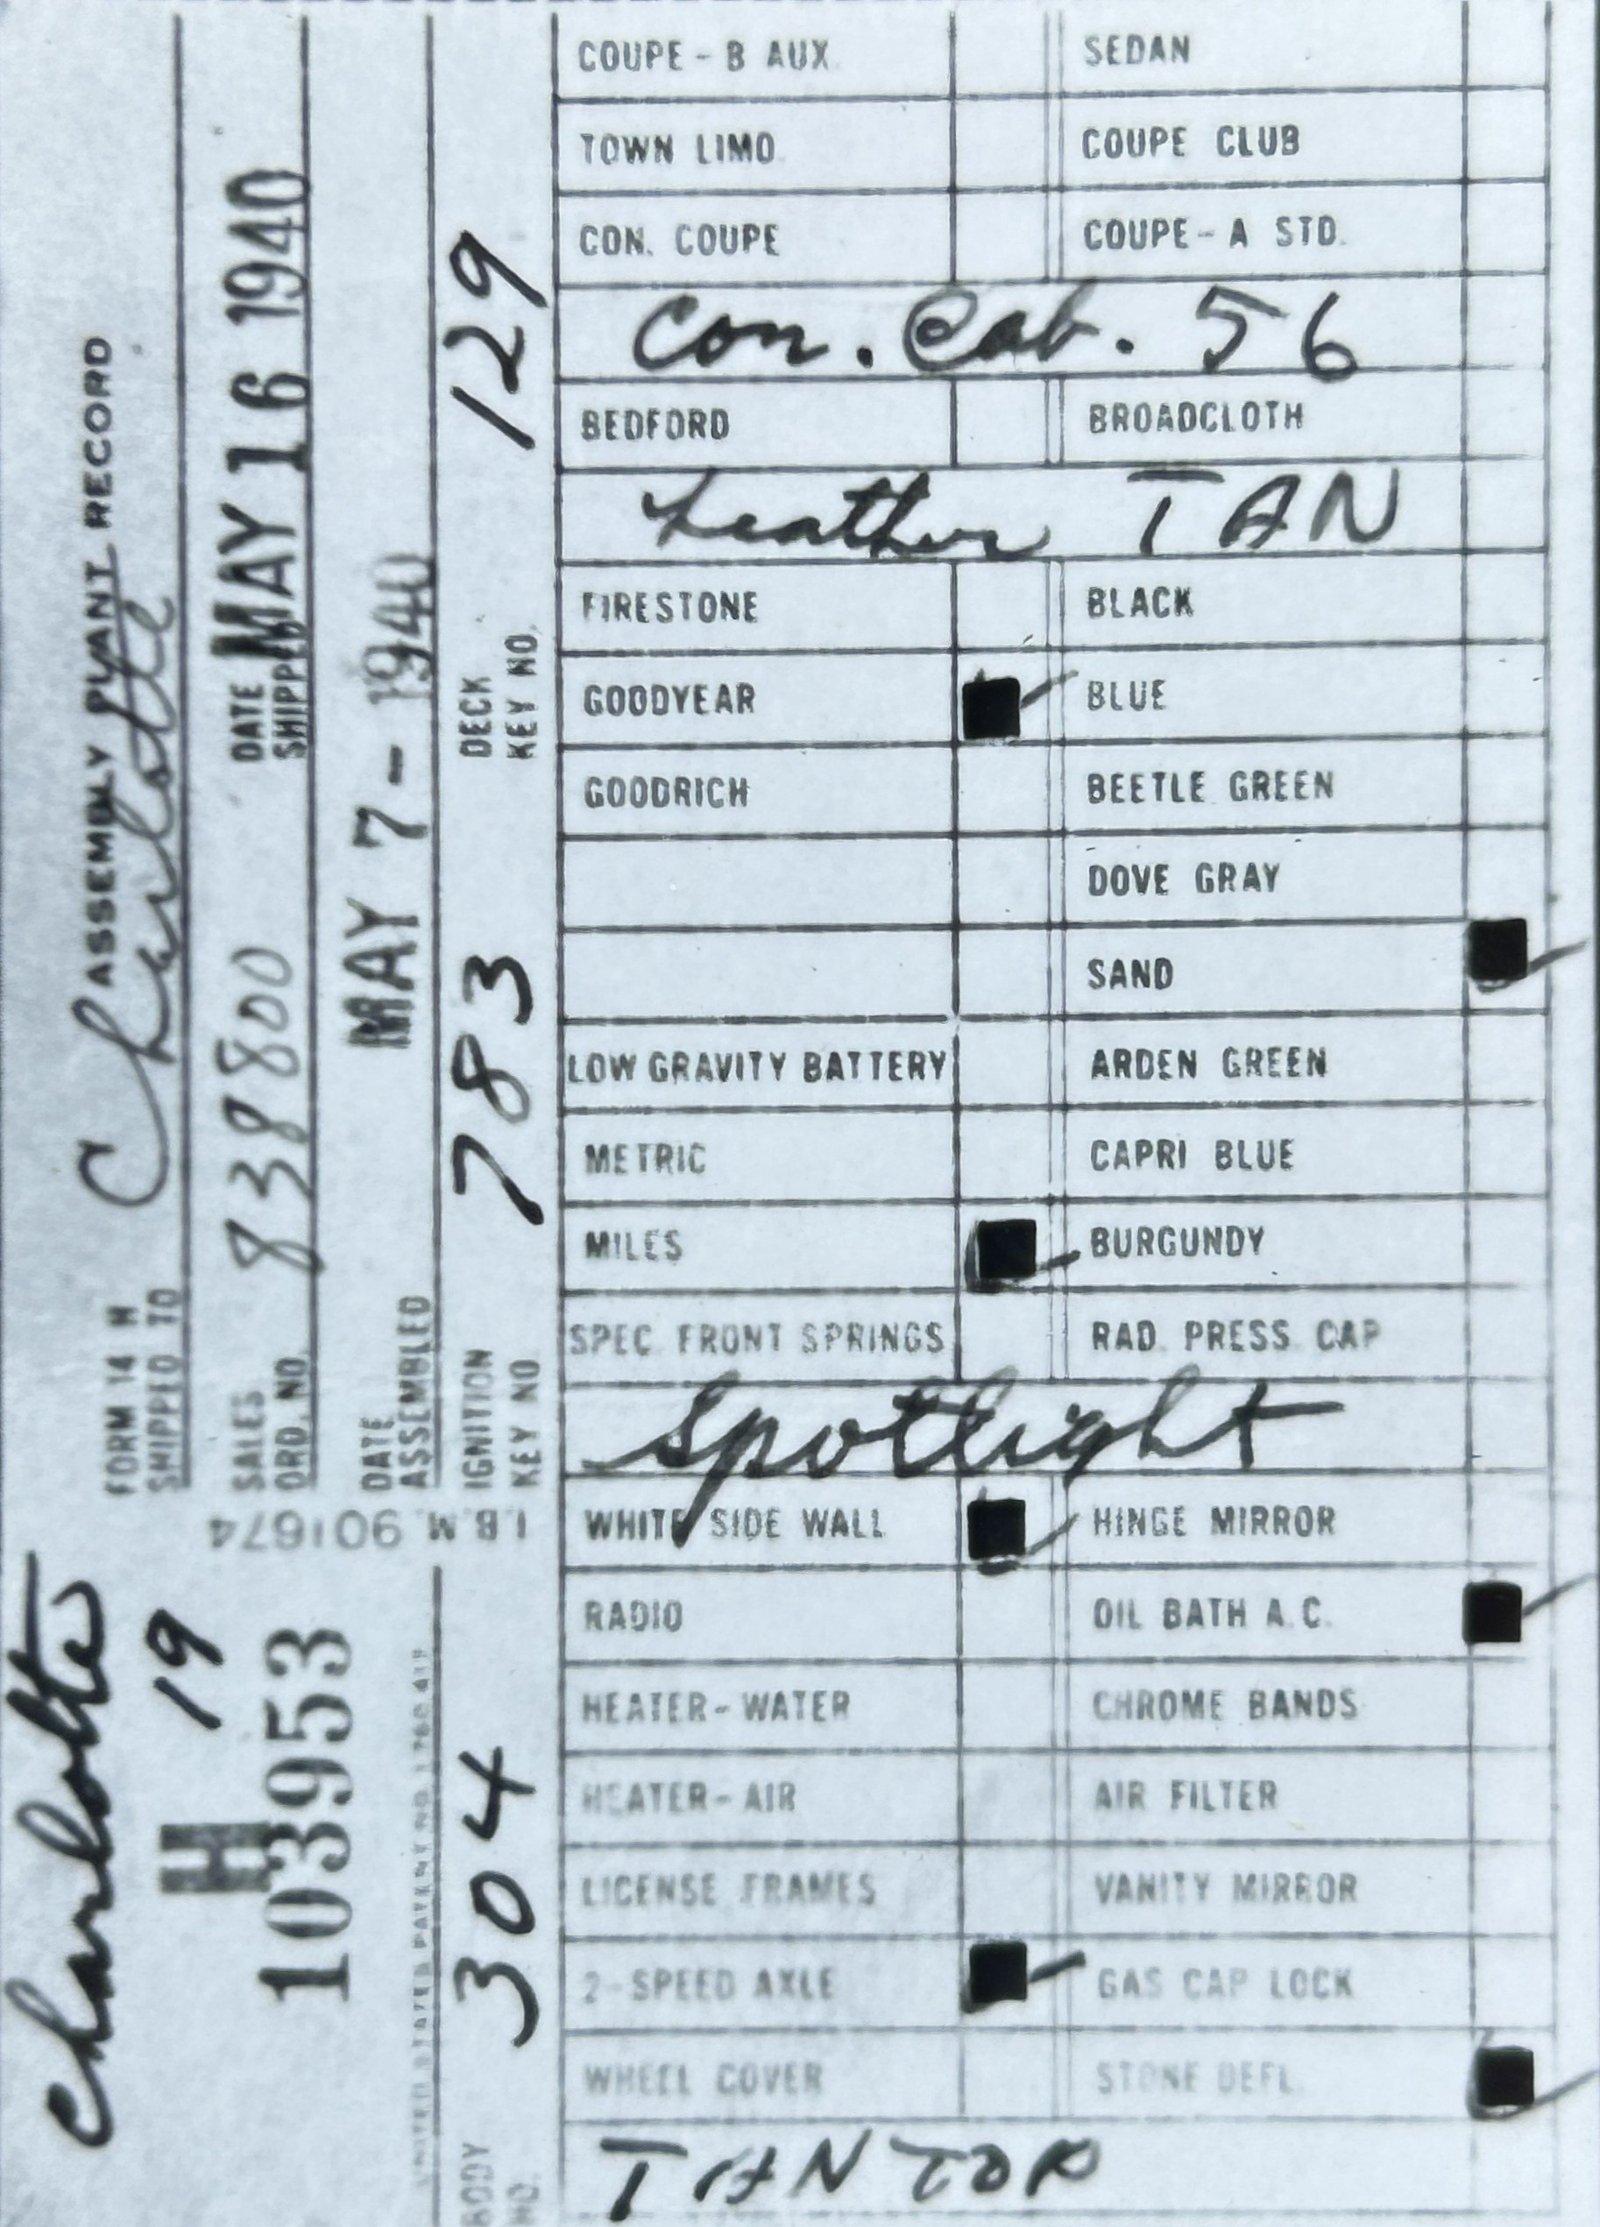 Charlotte
19
H
103953
UNITED STATES PATENT NO. 1,780,419
BODY NO. 304
I.B.M. 901674
FORM 14 H ASSEMBLY PLANT RECORD
SHIPPED TO Charlotte
SALES ORD. NO. 838800 DATE SHIPPED MAY 16 1940
DATE ASSEMBLED MAY 7 - 1940
IGNITION KEY NO 783 DECK KEY NO. 129
COUPE - B AUX. SEDAN
TOWN LIMO. COUPE CLUB
CON. COUPE COUPE - A STD.
Con. Cab. 56
BEDFORD BROADCLOTH
Leather TAN
FIRESTONE BLACK
GOODYEAR BLUE
GOODRICH BEETLE GREEN
DOVE GRAY
SAND
LOW GRAVITY BATTERY ARDEN GREEN
METRIC CAPRI BLUE
MILES BURGUNDY
SPEC. FRONT SPRINGS RAD. PRESS. CAP
Spotlight
WHITE SIDE WALL HINGE MIRROR
RADIO OIL BATH A.C.
HEATER - WATER CHROME BANDS
HEATER - AIR AIR FILTER
LICENSE FRAMES VANITY MIRROR
2-SPEED AXLE GAS CAP LOCK
WHEEL COVER STONE DEFL.
TAN TOP